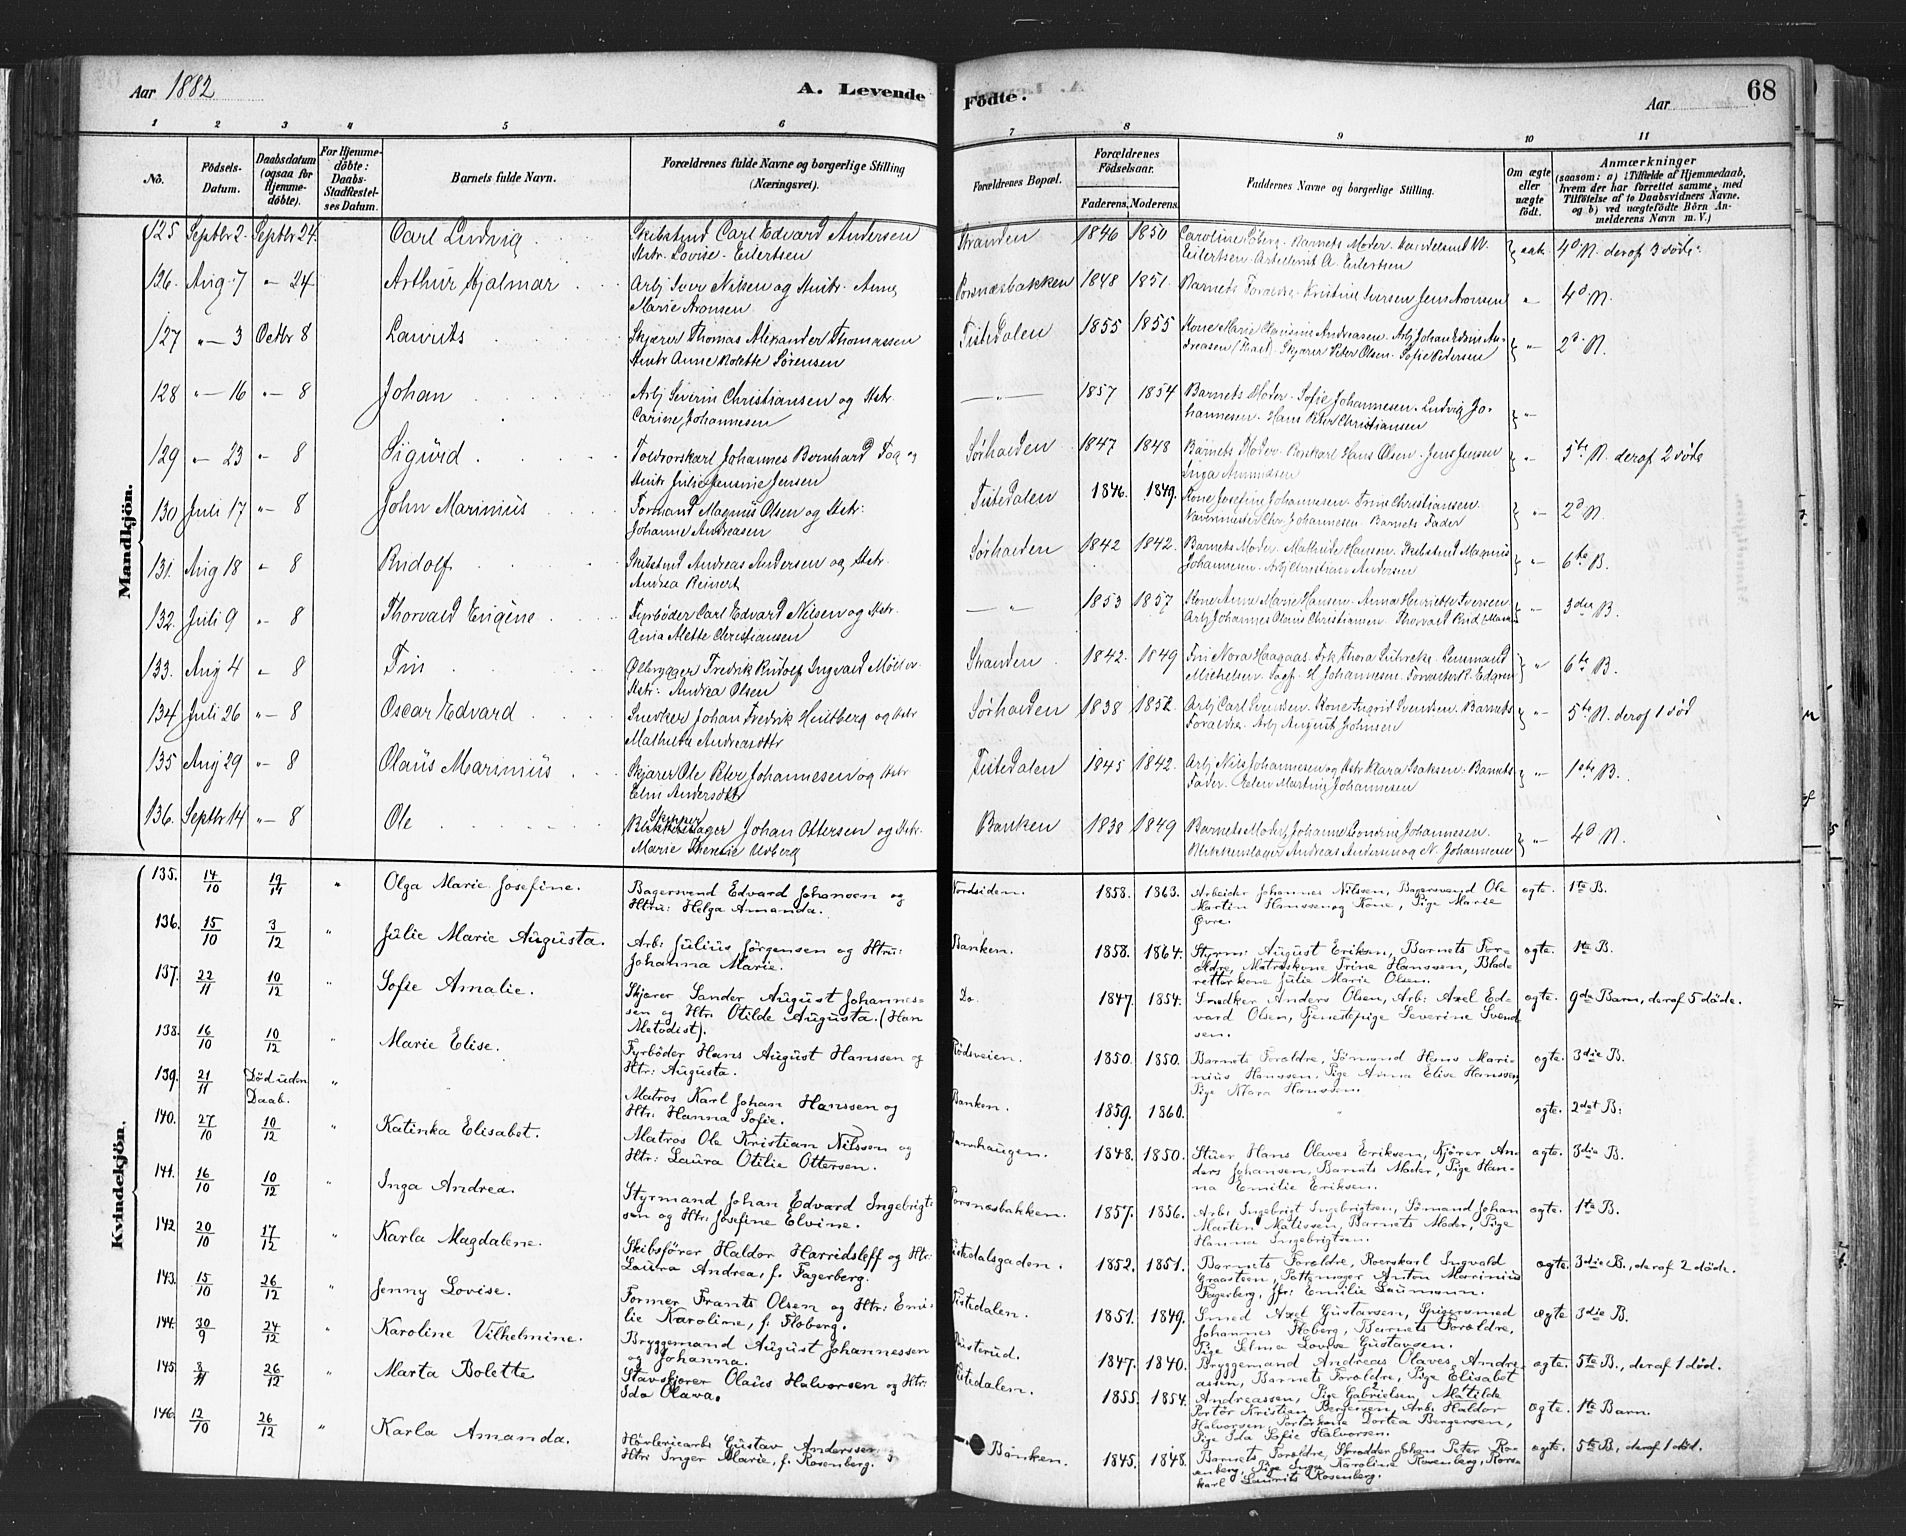 Aar 1882
A. Levende
Födte.
Aar
68
1 2 3 4 5 6 7 8 9 10 11
No.
Födsels-Datum.
Daabsdatum (ogsaa for Hjemme-döbte).
For Hjemme-döbte: Daabs-Stadfæstel-ses Datum.
Barnets fulde Navn.
Forældrenes fulde Navne og borgerlige Stilling (Næringsvei).
Forældrenes Bopæl.
Forældrenes Födselsaar.
Faderens. Moderens.
Faddernes Navne og borgerlige Stilling.
Om ægte eller uægte födt.
Anmærkninger
(saasom: a) i Tilfælde af Hjemmedaab, hvem der har forrettet samme, med Tilföielse af to Daabsvidners Navne, og b) ved uægtefödte Börn An-melderens Navn m. V.)
Mandkjön.
125 Septbr 2. Septbr 24. Carl Ludvig Skibstmd Carl Edvard Andersen
Hstr. Lovise Eilertsen Stranden 1846 1850 Barnets Moder
Eilertsen A. Eilertsen 4d N. deraf 3 döde
126. Aug. 7 " 24 Arthur Hjalmar Arb. Iver Nilsen og Hustr. Anne
Marie Aronsen Porsnæsbakken 1848 1851. Barnets Forældre. Kristine Iversen Jens Aronsen " 4d N.
127 " 3 Octbr 8 Laurits Skjærer Thomas Alexander Thomassen
Hustr Anne Bolette Sørensen Tistedalen 1855 1855 Kone Marie Andreasen. Arb. Johan Edvin An-
dreasen Skjærer Peter Olsen. Sofie Pedersen " 2d N.
128 " 16 " 8 Johan Arb. Severin Christiansen og Hstr
Carine Johannesen " 1857 1854 Barnets Moder. Sofie Johannesen. Ludvig Jo-
hannesen. Hans Peter Christiansen "
129 " 23 " 8 Sigurd Johannes Bernhard
Hustr Julie Jensine Jensen Sørhalden 1847 1848 Barnets Moder. Hans Olsen. Jens Jensen
Inga " 5te N. deraf 2 döde
130 Juli 17 " 8 John Marinius Formand Magnus Olsen og Hstr:
Johanne Andreasen Tistedalen 1846. 1849. Kone Josefine Johannesen. Trine Christiansen.
Chr. Johannesen. Barnets Fader " 2d N.
131. Aug 18 " 8 Rudolf Skibstmd Andreas Andersen og Hstr.
Andrea Reinert Sørhalden 1842 1842. Barnets Moder. Mathilde Hansen. Skibstmd Magnus
Johannesen. Arb. Christian Andersen " 6te B.
132. Juli 9 " 8 Thorvald Eugene Fyrbøder Carl Edvard Nilsen og Hstr.
Alette Christiansen " 1853 1857 Kone Anne Marie Hansen. Anna Henriette Iversen
Arb. Johannes Olaus Christiansen. Thorvald " 3die B.
133. Aug 4 " 8 Ølbrygger Fredrik Rudolf Ingvald Møller
Hstr. Andrea Olsen Stranden 1842. 1849 Nora Haagaas. Frk. Thora
Michelsen. H. Johannesen. " 6te B.
134 Juli 26 " 8 Oscar Edvard Snedker Johan Fredrik Hultberg og Hstr
Mathilde Andreasdttr Sørhalden 1838 1852 Arb. Carl Svendsen. Kone Ingrid Svendsen. Barnets
Forældre. Arb. August Johnsen " 5te N. deraf 1 död
135 Aug 29 " 8 Olaus Marinius Skjærer Ole Peter Johannesen og Hstr
Elin Andersdttr Tistedalen 1845 1842. Arb. Nils Johannesen og Hstr Klara Isaksen. Barnets
Fader. Martine Johannesen " 1ste B.
136. Septbr 14 " 8 Ole Skipper
Blikkenslager Johan Ottersen og Hstr.
Marie Therese Udberg Banken 1838 1849 Barnets Moder, Johanne Johannesen.
Blikkenslager Andreas Andersen og N. Johannesen " 4d N.
Kvindekjön.
135. 14/10 19/11 " Olga Marie Josefine. Bagersvend Edvard Johansen og
Htru: Helga Amanda. Nordsiden. 1858. 1863. Arbeider Johannes Nilssen, Bagersvend Ole
Martin Hanssen og Kone, Pige Marie
Øvre. ægte. 1ste B.
136. 15/10 3/12 " Julie Marie Augusta. Arb: Julius Jørgensen og Htru:
Johanna Marie. Banken. 1858. 1864. Styrm: August Eriksen, Barnets For-
ældre, Matroskone Trine Hanssen,
Julie Marie Olsen. ægte. 1ste B.
137. 22/11 10/12 " Sofie Amalie. Skjærer Sander August Johannes-
sen og Htr. Otilde Augusta. (Han
Metodist). Do. 1847. 1854. Snedker Anders Olsen, Arb: Axel Ed-
vard Olsen, Tjenestepige Severine Svend-
sen. ægte. 9de Barn, deraf 5 döde.
138. 16/10 10/12 " Marie Elise. Fyrbøder Hans August Hanssen og
Htr: Augusta. Rødsveien. 1850. 1850. Barnets Forældre, Sømand Hans Mari-
nius Hanssen, Pige Anna Elise Hanssen,
Pige Klara Hanssen. ægte. 3die B.
139. 21/11 Död uden
Daab. " Matros Karl Johan Hanssen og
Htr: Hanna Sofie. Banken. 1859. 1860. " ægte. 2det B:
140. 27/10 10/12 " Katinka Elisabet. Matros Ole Kristian Nilssen og
Htr: Laura Otilie Ottersen. 1848. 1850. Stuer Hans Olaves Eriksen, Kjører An-
ders Johansen, Barnets Moder, Pige Han-
na Emilie Eriksen. ægte. 3die B.
141. 16/10 10/12 " Inga Andrea. Styrmand Johan Edvard Ingebrigt-
sen og Htr: Josefine Elvine. Porsnæsbakken. 1857. 1856. Arb: Ingebrigt Ingebrigtsen, Sømand Johan
Martin Matissen, Barnets Moder, Pige
Hanna Ingebrigtsen. ægte. 1ste B.
142 20/10 17/12 " Karla Magdalene. Skibsfører Haldor Harridsleff og Htr:
Laura Andrea, f. Fagerberg. Tistedalsgaden. 1852. 1851. Barnets Forældre, Roerskarl Ingvald
Graasteen, Pottemager Anton Marinius
Fagerberg, Jfr: Emilie Laumann. ægte. 3die B., deraf 2 döde.
143. 15/10 26/12 " Jenny Lovise. Former Frants Olsen og Htr: Emi-
lie Karoline, f. Floberg. Tistedalen. 1851. 1849. Smed Axel Gustavsen, Spigersmed
Johannes Floberg, Barnets Forældre,
Pige Selma Lovise Gustavsen. ægte 3die B.
144. 30/9 24/12 " Karoline Vilhelmine. Bryggemand August Johannessen
og Johanna. 1847. 1840. Bryggemand Andreas Olaves Andre-
assen, Barnets Forældre, Pige Elisabet
Andreassen, Pige Gabrielsen, Matilde ægte. 5te B., deraf 1 död.
145. 8/11 26/12 " Marta Bolette Stavskjærer Olaus Halvorsen og Htr:
Ida Olava. Tistedalen. 1855. 1854. Portør Kristian Bergersen, Arb: Haldor
Halvorsen, Portørkone Dortea Bergersen,
Pige Ida Sofie Halvorsen. ægte. 1ste Barn.
146. 12/10 26/12 " Karla Amanda. Høvleriearb: Gustav Anderssen
Htr: Inger Marie, f. Rosenberg. Banken. 1845. 1848. Barnets Forældre, Skrædder Johan Peter Ro-
senberg, Pige Inga Karoline Rosenberg, Rors-
karl Laurits Rosenberg. ægte. 5te B., deraf 1 död.